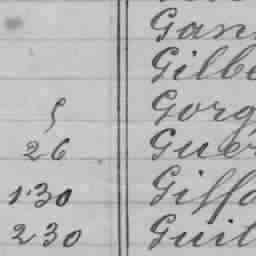 Gan
Gilbe
5 Gorg
26 Guer
130 Giffo
230 Guil